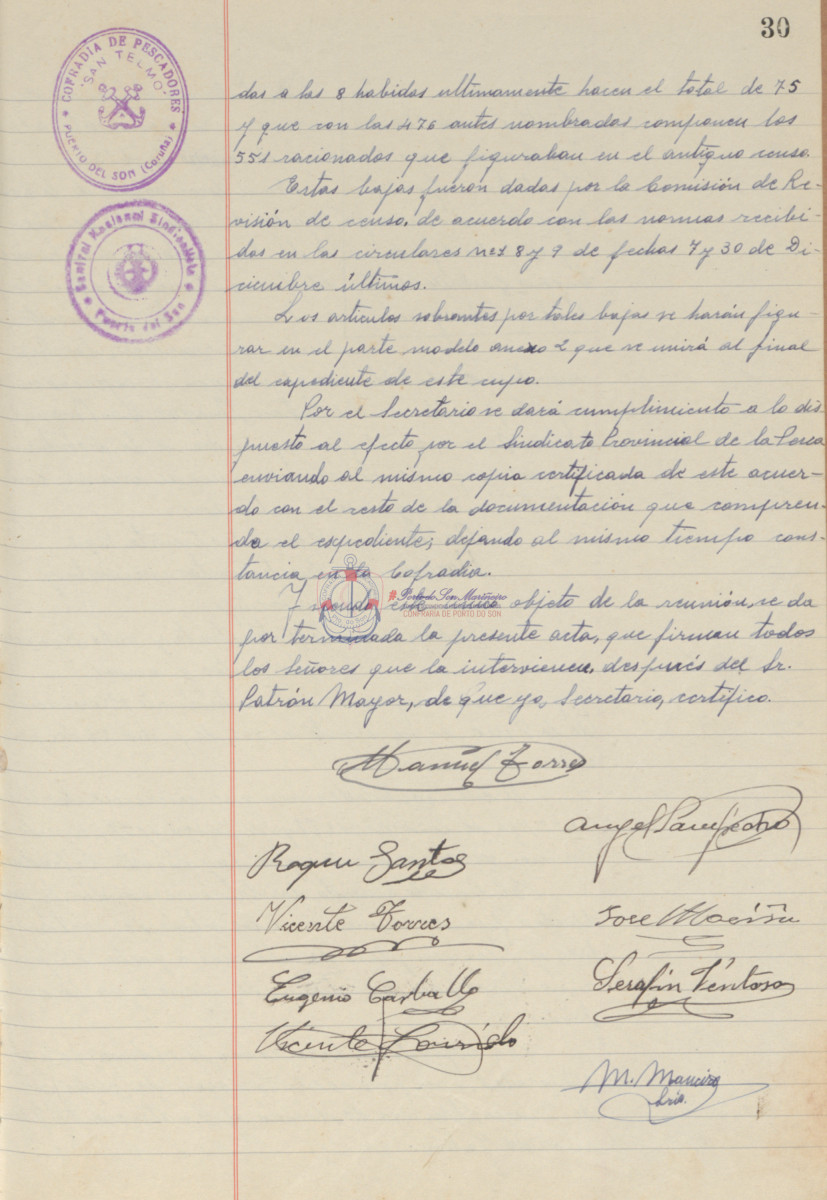 30
COFRADIA DE PESCADORES
"SAN TELMO"
PUERTO DEL SON (Coruña)
Central Nacional Sindicalista
Puerto del Son
das a las 8 habidas ultimamente hacen el total de 75
y que con las 476 antes nombradas componen los
551 racionados que figuraban en el antiguo censo.
Estas bajas fueron dadas por la Comisión de Re-
visión de censo, de acuerdo con las normas recibi-
das en las circulares nºs 8 y 9 de fechas 7 y 30 de Di-
ciembre últimos.
Los artículos sobrantes por tales bajas se harán figu-
rar en el parte modelo anexo 2 que se unirá al final
del expediente de este cupo.
Por el Secretario se dará cumplimiento a lo dis
puesto al efecto por el Sindicato Provincial de la Pesca
enviando al mismo copia certificada de este acuer-
do con el resto de la documentación que compren-
da el expediente; dejando al mismo tiempo cons-
tancia en la Cofradia.
Y siendo este único objeto de la reunión, se da
por terminada la presente acta, que firman todos
los Señores que la intervienen, después del Sr.
Patrón Mayor, de que yo, Secretario, certifico.
Porto do Son Mariñeiro
CONFRARIA DE PORTO DO SON
Manuel Torres
Angel Sampedro
Roque Santos
Vicente Torres
Jose
Eugenio Carballo
Serafin Ventoso
Vicente
M. Maneiro
Srio.